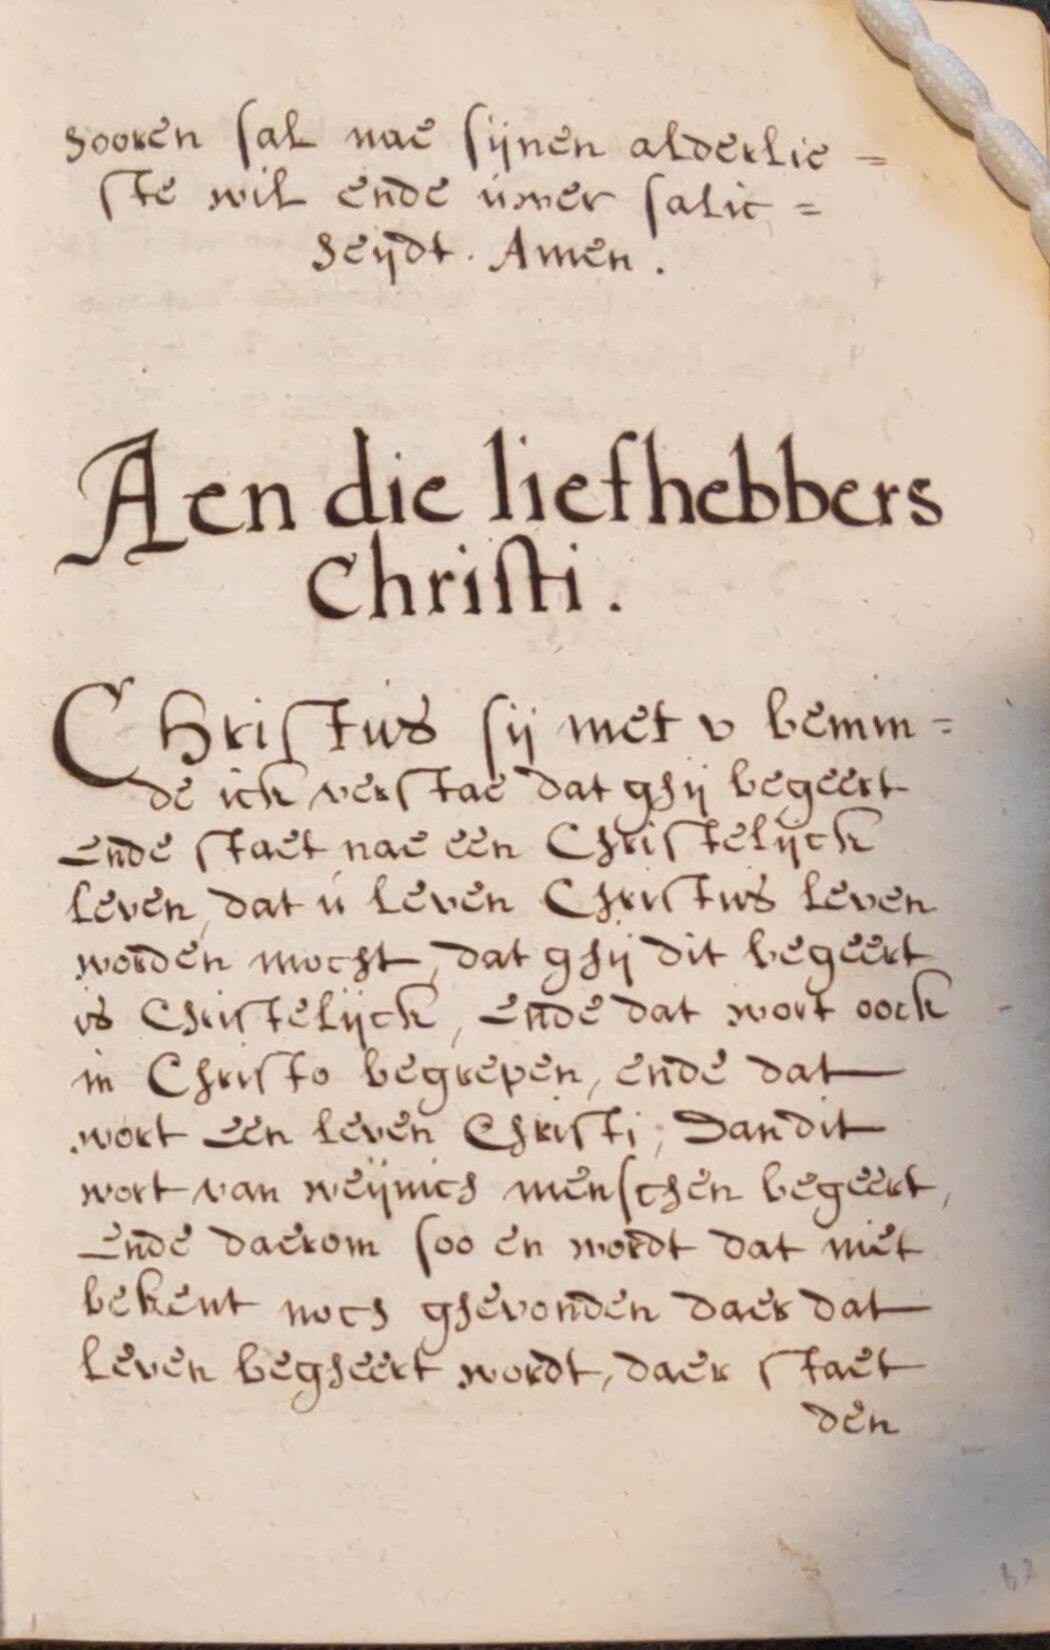 hooren sal nae sijnen alderlie =
ste wil ende uwer salic =
heijdt. Amen.
Aen die liefhebbers
Christi.
Christus sij met v bemin =
de ick verstae dat ghij begeert
ende staet nae een Christelijck
leven, dat u leven Christus leven
worden mocht, dat ghij dit begeert
is Christelijck, ende dat wort oock
in Christo begrepen, ende dat
wort een leven Christi, Dan dit
wort van weijnich menschen begeert,
Ende daerom soo en wordt dat niet
bekent noch ghevonden daer dat
leven begheert wordt, daer staet
den